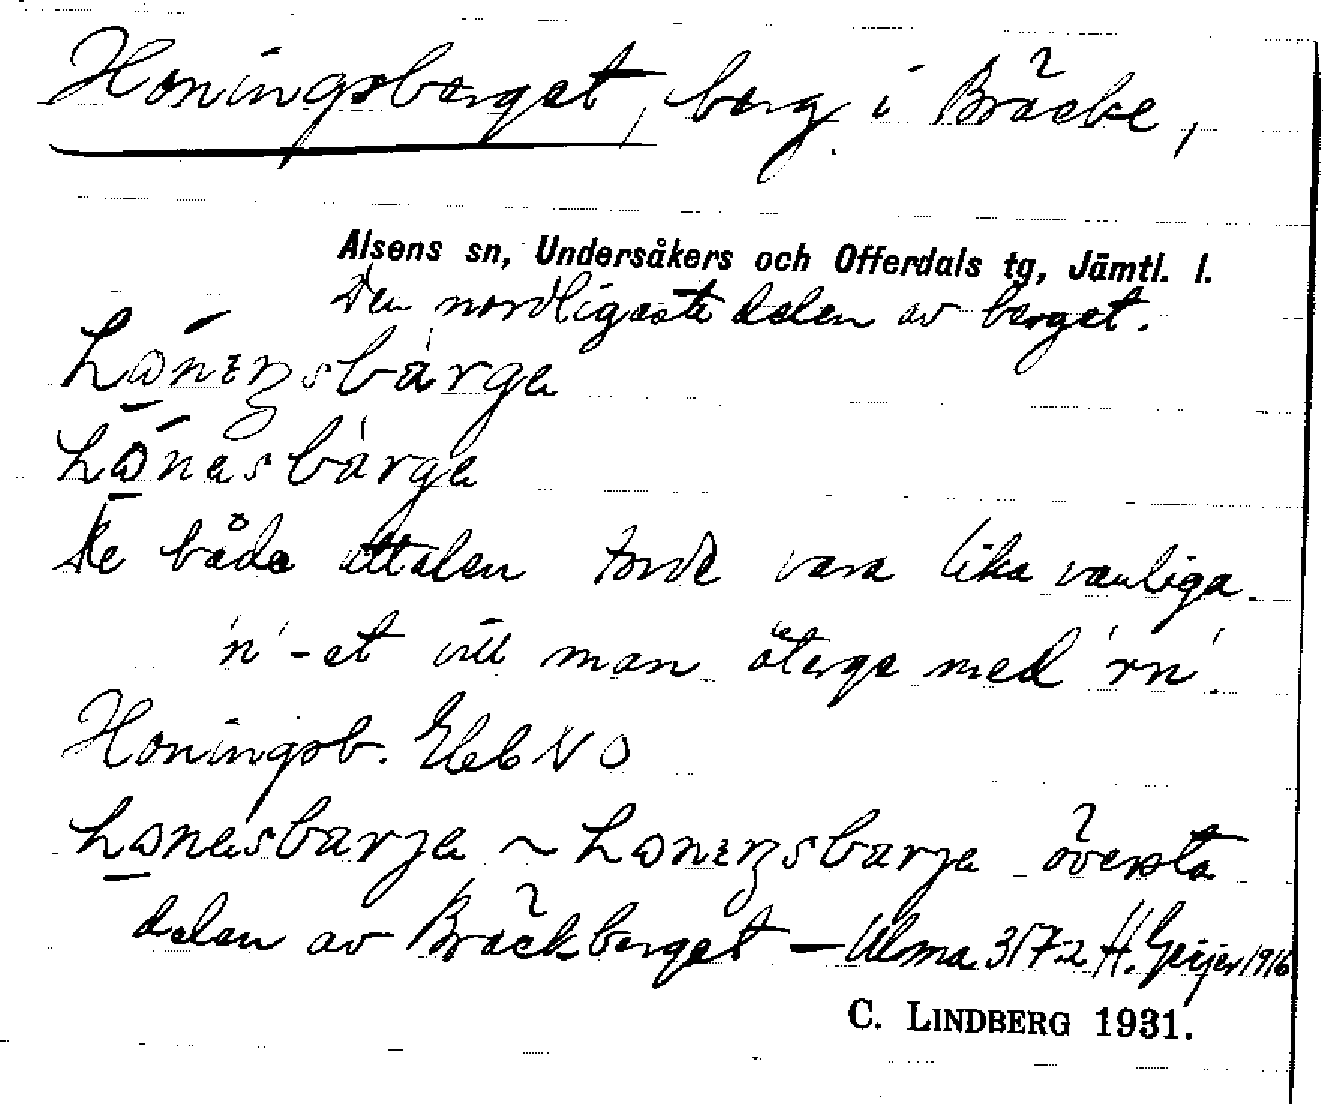 Honingsberget, berg i Bräcke,
Alsens sn, Undersåkers och Offerdals tg, Jämtl. l.
Den nordligaste delen av berget.
De båda uttalen torde vara lika vanliga.
'n'-et vill man återge med 'rn'.
Honingsb. Ekb NO
översta
delen av Bräckberget – Ulma 317:2 H. Geijer 1916
C. LINDBERG 1931.